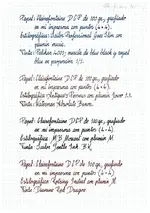 Papel: Clairefontaine DCP de 100 gr., grafiado
en mi impresora con puntos (4x4).
Estilográfica: Sailor Professional Gear Slim con
plumín music.
Tinta: Pelikan 4001; mezcla de blue black y royal
blue en proporción 1/1.
Papel: Clairefontaine DCP de 100 gr., grafiado
en mi impresora con puntos (4x4).
Estilográfica: con plumín
Tinta: Waterman Absolute Brown.
Papel: Clairefontaine DCP de 100 gr., grafiado
en mi impresora con puntos (4x4).
Estilográfica: M con plumín M.
Tinta: Sailor Ink
Papel: Clairefontaine DCP de 100 gr., grafiado
en mi impresora con puntos (4x4).
Estilográfica: Rotring con plumín M
Tinta: Diamine Red Dragon